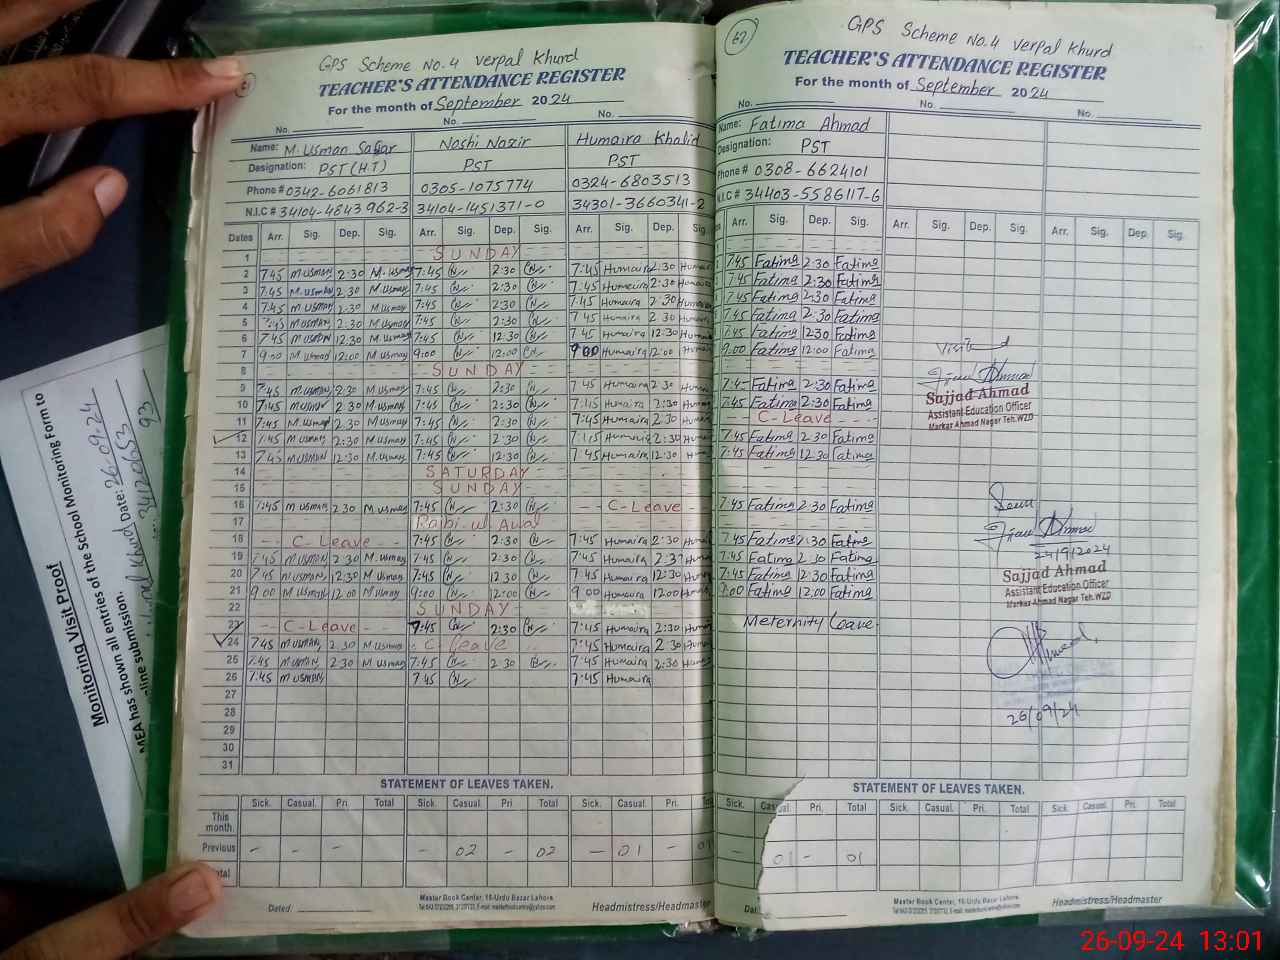 61
GPS Scheme No.4 Verpal Khurd
TEACHER'S ATTENDANCE REGISTER
For the month of September 2024
No. No. No.
Name: M. Usman Safdar Noshi Nazir Humaira Khalid
Designation: PST (H.T) PST PST
Phone # 0342-6061813 0305-1075774 0324-6803513
N.I.C # 34104-4843962-3 34104-1451371-0 34301-3660341-2
Dates Arr. Sig. Dep. Sig. Arr. Sig. Dep. Sig. Arr. Sig. Dep.
1 SUNDAY
2 7:45 M USMAN 2:30 M. Usman 7:45 2:30 7:45 Humaira 2:30
3 7:45 M. USMAN 2:30 M. Usman 7:45 2:30 7:45 Humaira 2:30
4 7:45 M. USMAN 2:30 M. Usman 7:45 2:30 7:45 Humaira 2:30
5 7:45 M USMAN 2:30 M. Usman 7:45 2:30 7:45 Humaira 2:30
6 7:45 M USMAN 12:30 M Usman 7:45 12:30 7:45 Humaira 12:30
7 9:00 M Usman 12:00 M Usman 9:00 12:00 9:00 Humaira 12:00
8 SUNDAY
9 7:45 M. USMAN 2:30 M. Usman 7:45 2:30 7:45 Humaira 2:30
10 7:45 M USMAN 2:30 M. Usman 7:45 2:30 7:45 Humaira 2:30
11 7:45 M. Usman 2:30 M Usman 7:45 2:30 7:45 Humaira 2:30
12 7:45 M Usman 2:30 M Usman 7:45 2:30 7:45 Humaira 2:30
13 7:45 M USMAN 12:30 M. Usman 7:45 12:30 7:45 Humaira 12:30
14 SATURDAY
15 SUNDAY
16 7:45 M USMAN 2:30 M. Usman 7:45 2:30 C-Leave
17 Rabi-ul Awal
18 C-Leave 7:45 2:30 7:45 Humaira 2:30
19 7:45 M USMAN 2:30 M. Usman 7:45 2:30 7:45 Humaira 2:30
20 7:45 M USMAN 12:30 M Usman 7:45 12:30 7:45 Humaira 12:30
21 9:00 M USMAN 12:00 M Usman 9:00 12:00 9:00 Humaira 12:00
22 SUNDAY
23 C-Leave 7:45 2:30 7:45 Humaira 2:30
24 7:45 M USMAN 2:30 M Usman C-Leave 7:45 Humaira 2:30
25 7:45 M USMAN 2:30 M Usman 7:45 2:30 7:45 Humaira 2:30
26 7:45 M USMAN 7:45 7:45 Humaira
27
28
29
30
31
STATEMENT OF LEAVES TAKEN.
Sick. Casual. Pri. Total Sick. Casual. Pri. Total Sick. Casual. Pri.
This month
Previous - - - - 02 - 02 - 01 - 01
Dated:
Master Book Center, 16-Urdu Bazar Lahore
Headmistress/Headmaster
62
GPS Scheme No.4 Verpal Khurd
TEACHER'S ATTENDANCE REGISTER
For the month of September 2024
No. No. No.
Name: Fatima Ahmad
Designation: PST
Phone # 0308-6624101
N.I.C # 34403-5586117-6
Arr. Sig. Dep. Sig. Arr. Sig. Dep. Sig. Arr. Sig. Dep. Sig.
7:45 Fatima 2:30 Fatima
7:45 Fatima 2:30 Fatima
7:45 Fatima 2:30 Fatima
7:45 Fatima 2:30 Fatima
7:45 Fatima 12:30 Fatima
9:00 Fatima 12:00 Fatima
7:45 Fatima 2:30 Fatima
7:45 Fatima 2:30 Fatima
C-Leave
7:45 Fatima 2:30 Fatima
7:45 Fatima 12:30 Fatima
7:45 Fatima 2:30 Fatima
7:45 Fatima 2:30 Fatima
7:45 Fatima 2:30 Fatima
7:45 Fatima 12:30 Fatima
9:00 Fatima 12:00 Fatima
Meternity Leave
Visited
Sajjad Ahmad
Assistant Education Officer
Markaz Ahmad Nagar Teh.WZD
Seen
24/9/2024
Sajjad Ahmad
Assistant Education Officer
Markaz Ahmad Nagar Teh.WZD
26/09/24
STATEMENT OF LEAVES TAKEN.
Sick. Pri. Total Sick. Casual. Pri. Total Sick. Casual. Pri. Total
- 01 - 01
Master Book Center, 16-Urdu Bazar Lahore
Headmistress/Headmaster
Monitoring Visit Proof
MEA has shown all entries of the School Monitoring Form to
Date: 26.09.24
26-09-24 13:01